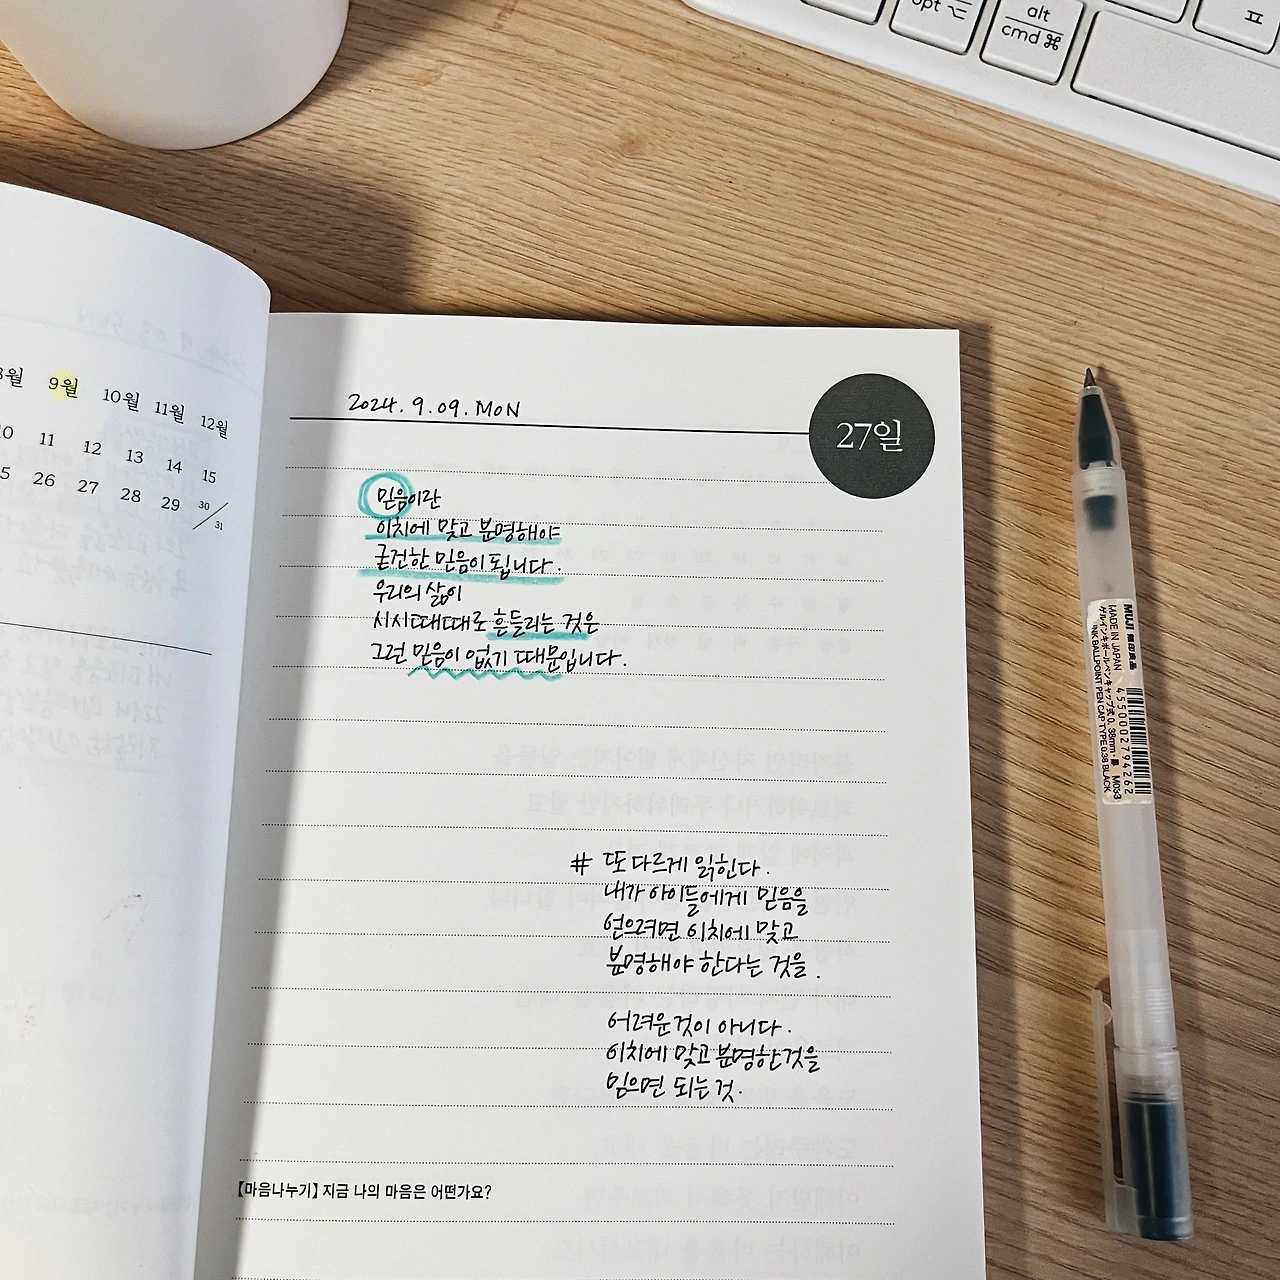 opt ⌥
alt
cmd ⌘
ㅍ
8월 9월 10월 11월 12월
10 11 12 13 14 15
25 26 27 28 29 30/31
2024. 9. 09. MON
27일
믿음이란
이치에 맞고 분명해야
굳건한 믿음이 됩니다.
우리의 삶이
시시때때로 흔들리는 것은
그런 믿음이 없기 때문입니다.
# 또 다르게 읽힌다.
내가 아이들에게 믿음을
얻으려면 이치에 맞고
분명해야 한다는 것을.
어려운 것이 아니다.
이치에 맞고 분명한 것을
믿으면 되는 것.
【마음나누기】 지금 나의 마음은 어떤가요?
MUJI 無印良品
MADE IN JAPAN
ゲルインキボールペンキャップ式 0.38mm・黒
INK BALLPOINT PEN CAP TYPE 0.38 BLACK
4550002794262